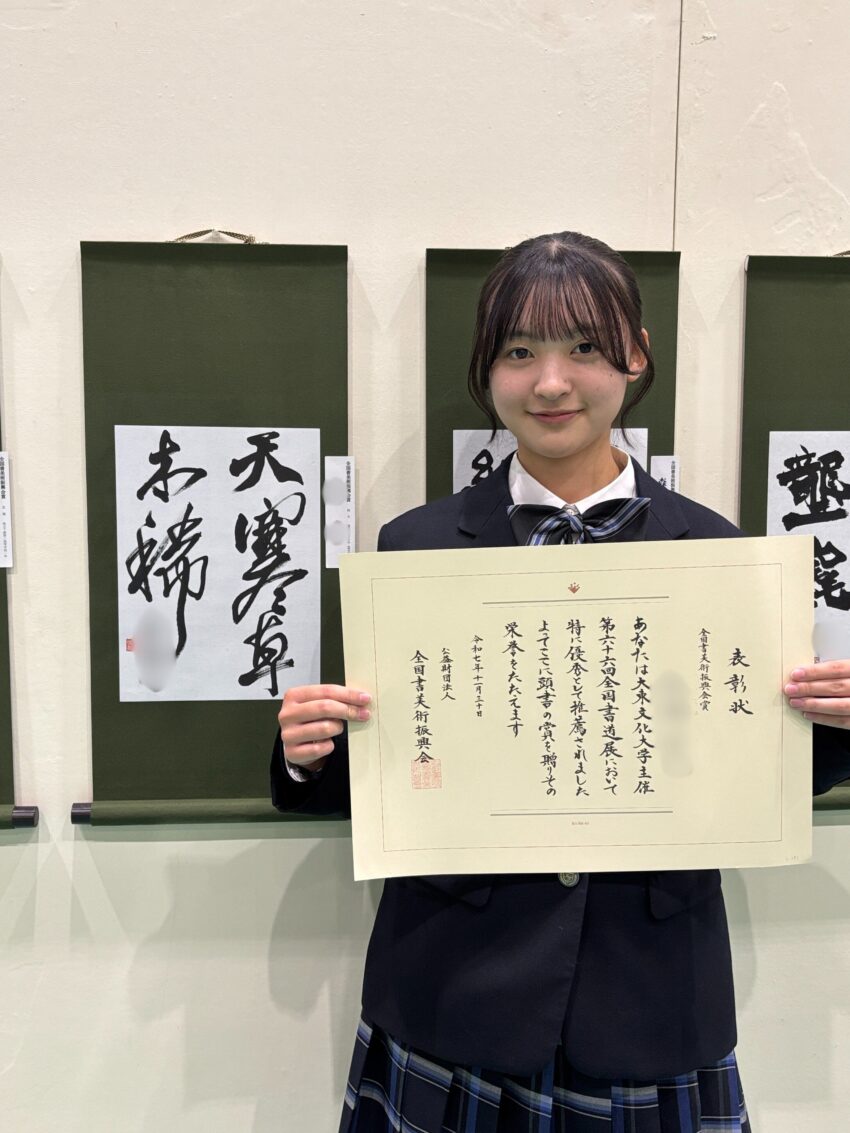 天寒草
木稀
全国書美術振興会賞
表彰状
全国書美術振興会賞
あなたは大東文化大学主催
第六十六回全国書道展において
特に優秀として推薦されました
よってここに頭書の賞を贈りその
栄誉をたたえます
令和七年十一月三十日
公益財団法人
全国書美術振興会